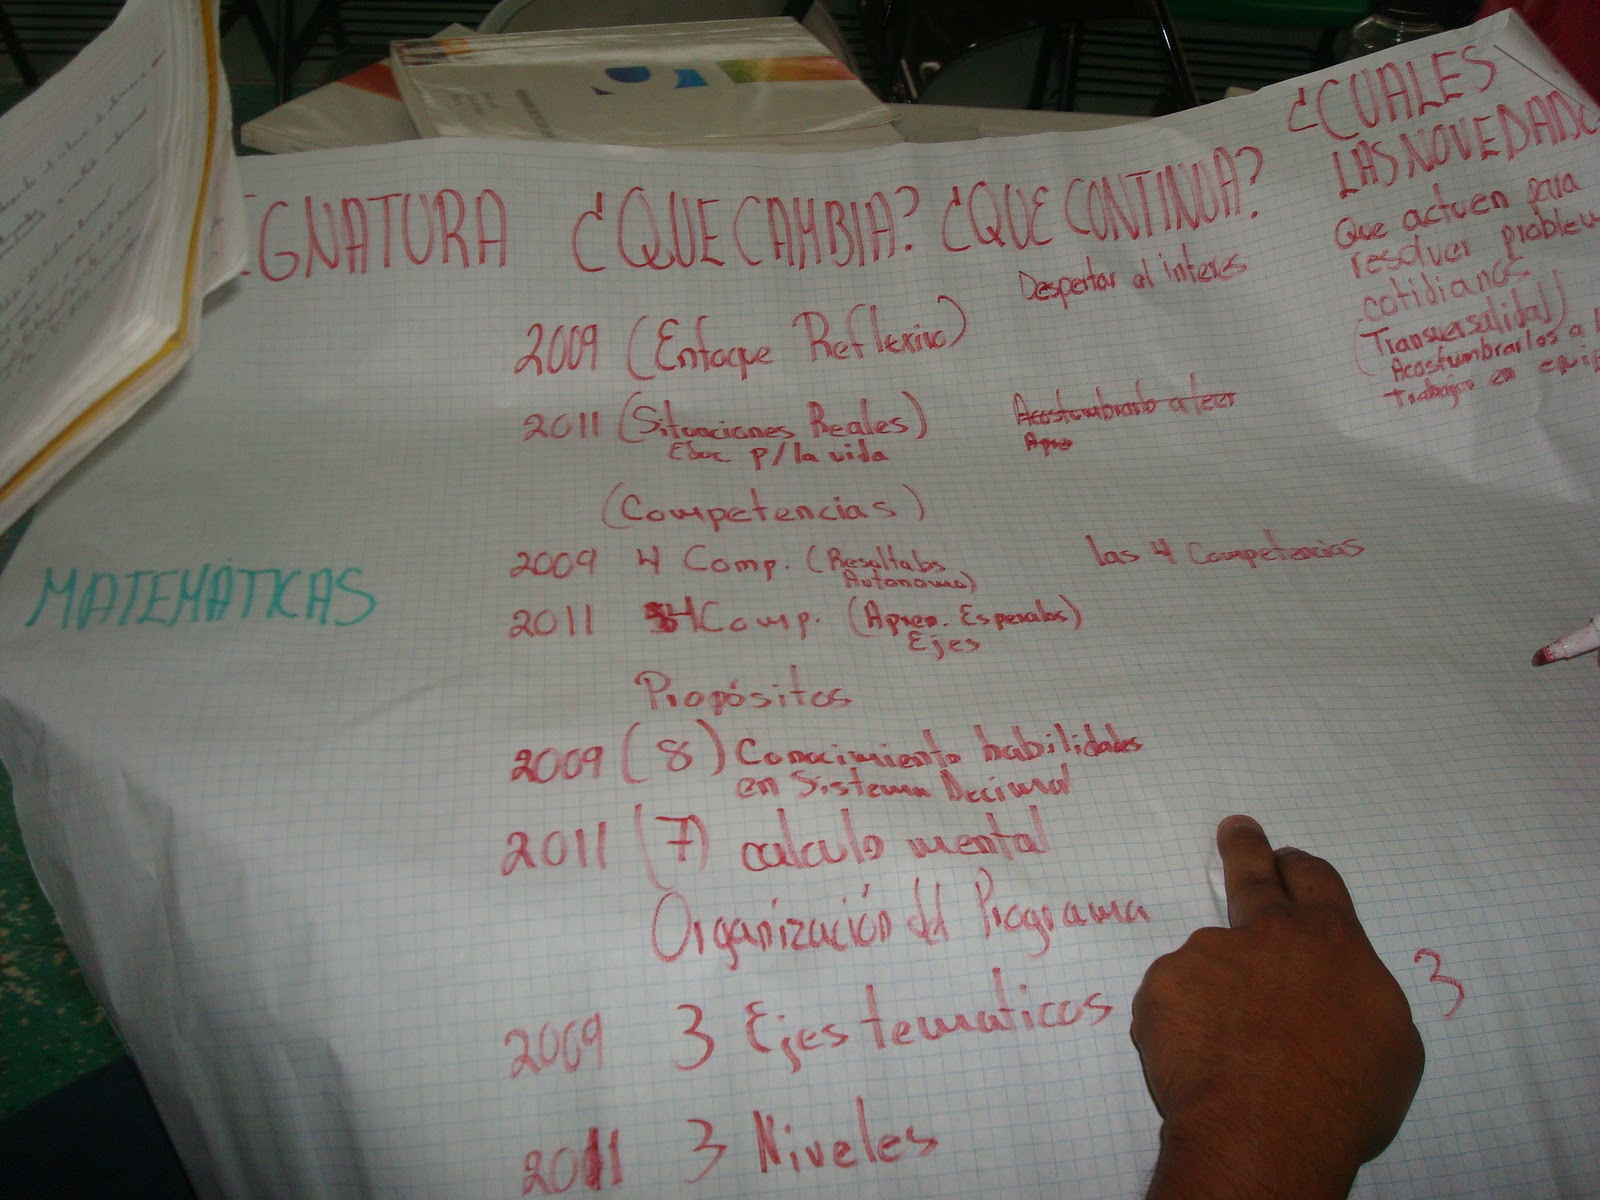 ¿CUALES
LAS NOVEDAD
IGNATURA ¿QUE CAMBIA? ¿QUE CONTINUA?
Que actuen para
resolver problem
cotidianos
(Transversalidad)
Acostumbrarlos a l
trabajar en equip
Despertar el interes
2009 (Enfoque Reflexivo)
2011 (Situaciones Reales)
Educ p/la vida
Acostumbrarlo a leer
Apre
(Competencias)
2009 4 Comp. (Resultabs
Autonoma)
las 4 Competencias
MATEMÁTICAS
2011 4 Comp. (Apren. Esperados)
Ejes
Propósitos
2009 (8) Conocimiento habilidades
en Sistema Decimal
2011 (7) calculo mental
Organización del Programa
2009 3 Ejes tematicos 3
2011 3 Niveles